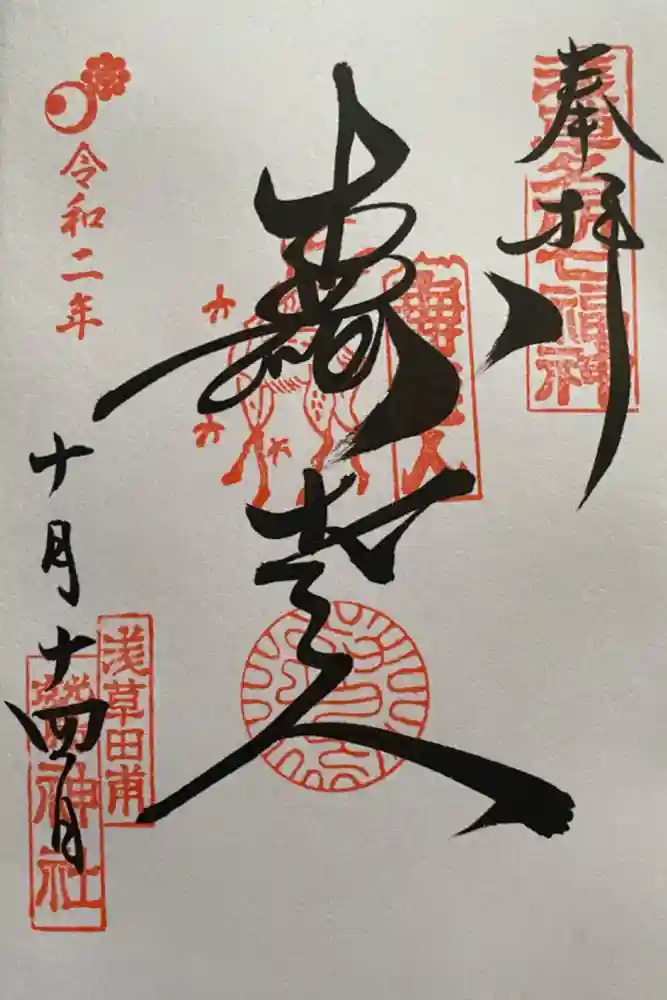 奉拝
浅草名所七福神
壽老人
壽老人
令和二年
十月十四日
浅草田甫
鷲神社